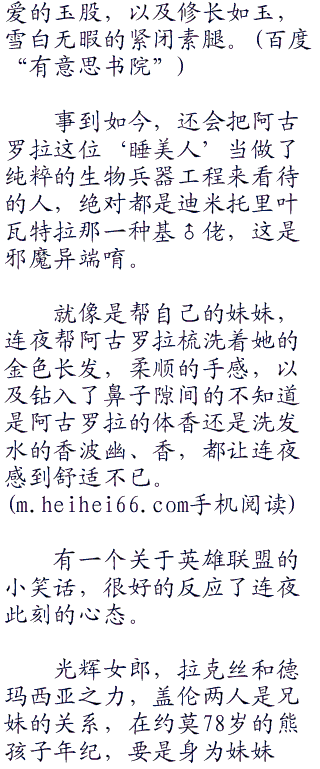 爱的玉股，以及修长如玉，
雪白无暇的紧闭素腿。(百度
“有意思书院”)
事到如今，还会把阿古
罗拉这位‘睡美人’当做了
纯粹的生物兵器工程来看待
的人，绝对都是迪米托里叶
瓦特拉那一种基♂佬，这是
邪魔异端唷。
就像是帮自己的妹妹，
连夜帮阿古罗拉梳洗着她的
金色长发，柔顺的手感，以
及钻入了鼻子隙间的不知道
是阿古罗拉的体香还是洗发
水的香波幽、香，都让连夜
感到舒适不已。
(m.heihei66.com手机阅读)
有一个关于英雄联盟的
小笑话，很好的反应了连夜
此刻的心态。
光辉女郎，拉克丝和德
玛西亚之力，盖伦两人是兄
妹的关系，在约莫78岁的熊
孩子年纪，要是身为妹妹